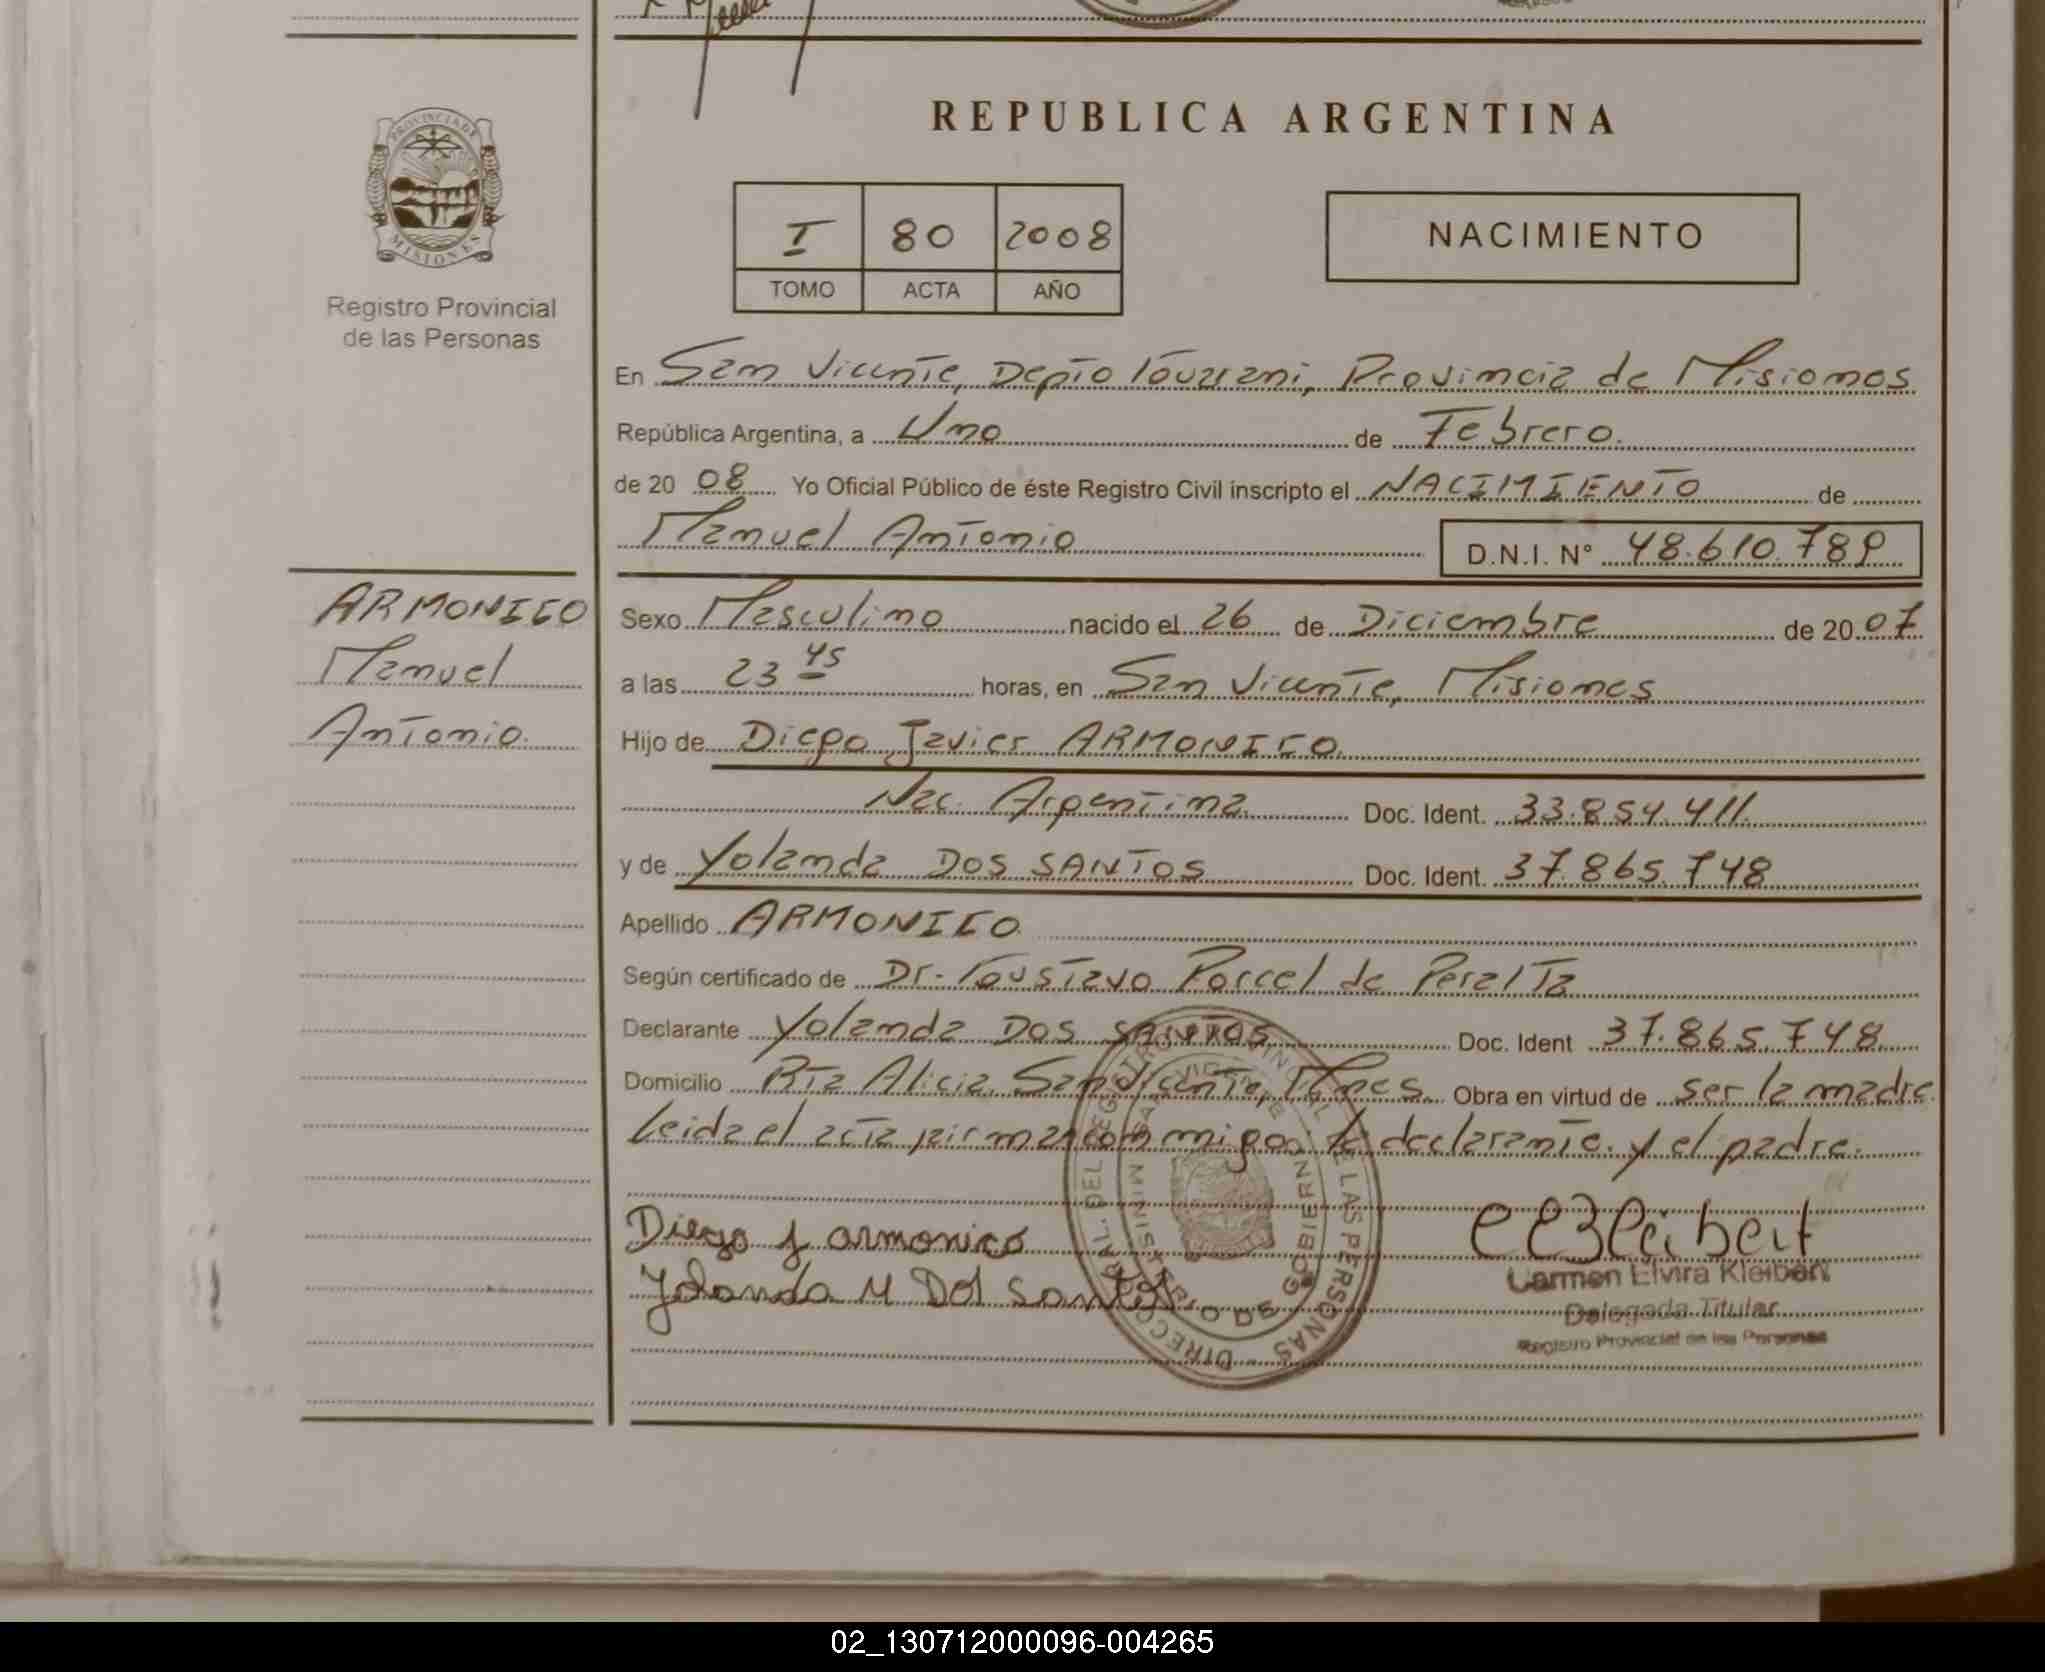 REPUBLICA ARGENTINA
PROVINCIA DE
MISIONES
Registro Provincial
de las Personas
I 80 2008
TOMO ACTA AÑO
NACIMIENTO
En San Vicente, Depto Guarani, Provincia de Misiones
República Argentina, a Uno de Febrero.
de 2008 Yo Oficial Público de éste Registro Civil inscripto el NACIMIENTO de
Manuel Antonio D.N.I. N° 48.610.789
ARMONICO
Manuel
Antonio.
Sexo Masculino nacido el 26 de Diciembre de 2007
a las 23 45 horas, en San Vicente, Misiones
Hijo de Diego Javier ARMONICO.
Nac. Argentina. Doc. Ident. 33.854.411.
y de Yolanda DOS SANTOS Doc. Ident. 37.865.748
Apellido ARMONICO.
Según certificado de Dr. Gustavo Porcel de Peralta
Declarante Yolanda DOS SANTOS Doc. Ident 37.865.748.
Domicilio Pta Alicia, San Vicente, Mnes. Obra en virtud de ser la madre.
Leida el acta firman conmigo la declarante. y el padre.
Diego J armonico
Yolanda M Dos Santos
CEKleibert
Carmen Elvira Kleibert
Delegada Titular
Registro Provincial de las Personas
DIRECC. GRAL. DEL REGISTRO PROVINCIAL DE LAS PERSONAS
MINISTERIO DE GOBIERNO
SAN VICENTE
02_130712000096-004265